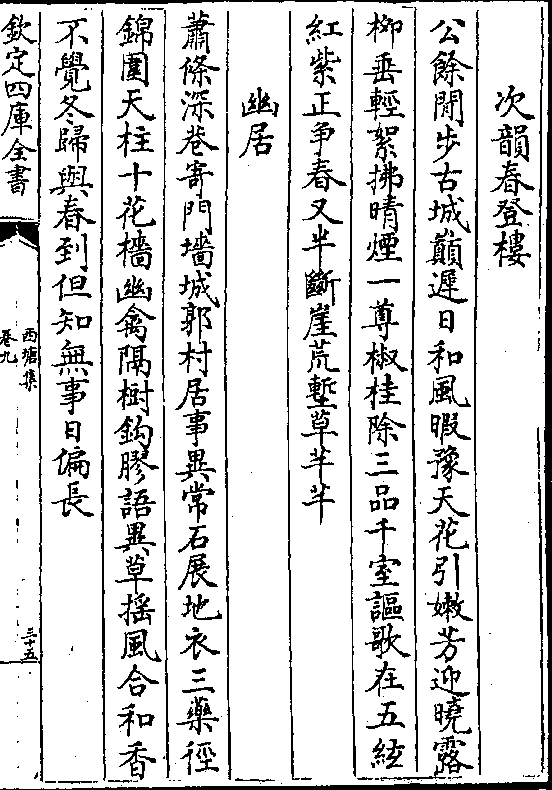 次韻春登樓
公餘閒步古城巔遲日和風暇豫天花引嫩芳迎曉露
柳垂輕絮拂晴煙一尊椒桂除三品千室謳歌在五絃
紅紫正爭春又半斷崖荒塹草芊芊
幽居
蕭條深巷寄門墻城郭村居事異常石展地衣三藥徑
錦圍天柱十花檣幽禽隔樹鈎膠語異草揺風合和香
不覺冬歸與春到但知無事日偏長
欽定四庫全書
西塘集
卷九
三十五